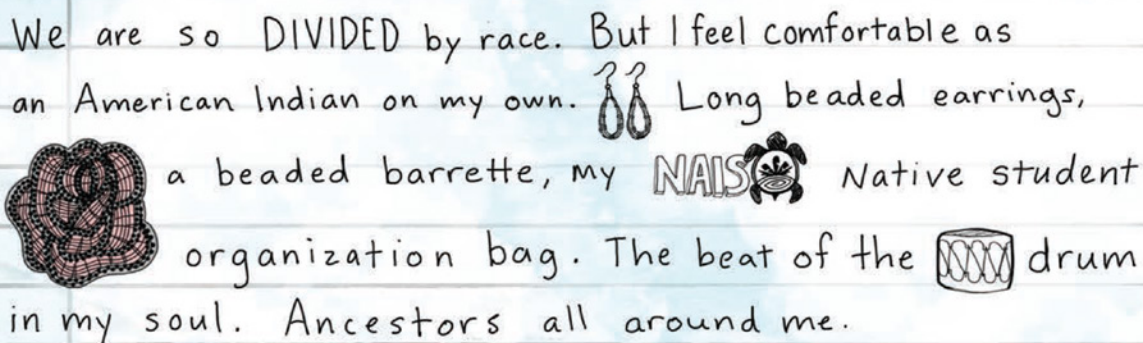 We are so DIVIDED by race. But I feel comfortable as
an American Indian on my own. Long beaded earrings,
a beaded barrette, my NAIS Native student
organization bag. The beat of the drum
in my soul. Ancestors all around me.